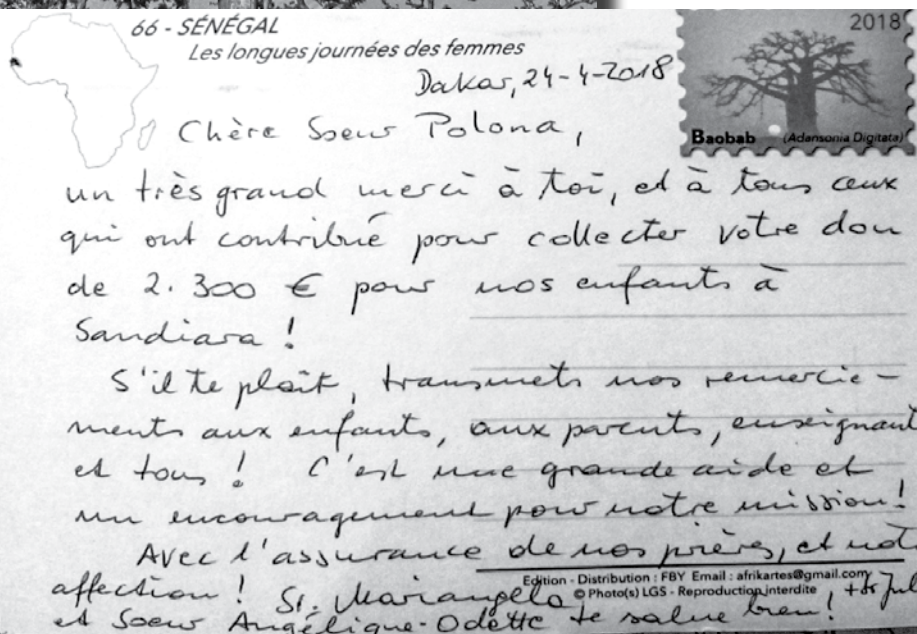 66 - SÉNÉGAL
Les longues journées des femmes
2018
Baobab (Adansonia Digitata)
Dakar, 24-4-2018
Chère Soeur Polona,
un très grand merci à toi, et à tous ceux
qui ont contribué pour collecter votre don
de 2.300 € pour nos enfants à
Sandiara !
S'il te plaît, transmets nos remercie-
ments aux enfants, aux parents, enseignant
et tous ! C'est une grande aide et
un encouragement pour notre mission!
Avec l'assurance de nos prières, et not
affection ! Sr. Mariangela
et Soeur Angélique-Odette te salue bien!
Edition - Distribution : FBY Email : afrikartes@gmail.com
© Photo(s) LGS - Reproduction interdite